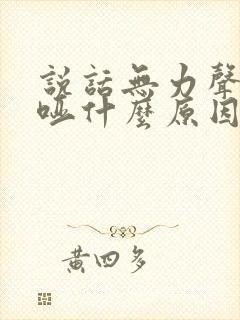 説話無力聲
啞什麼原因
黃四多